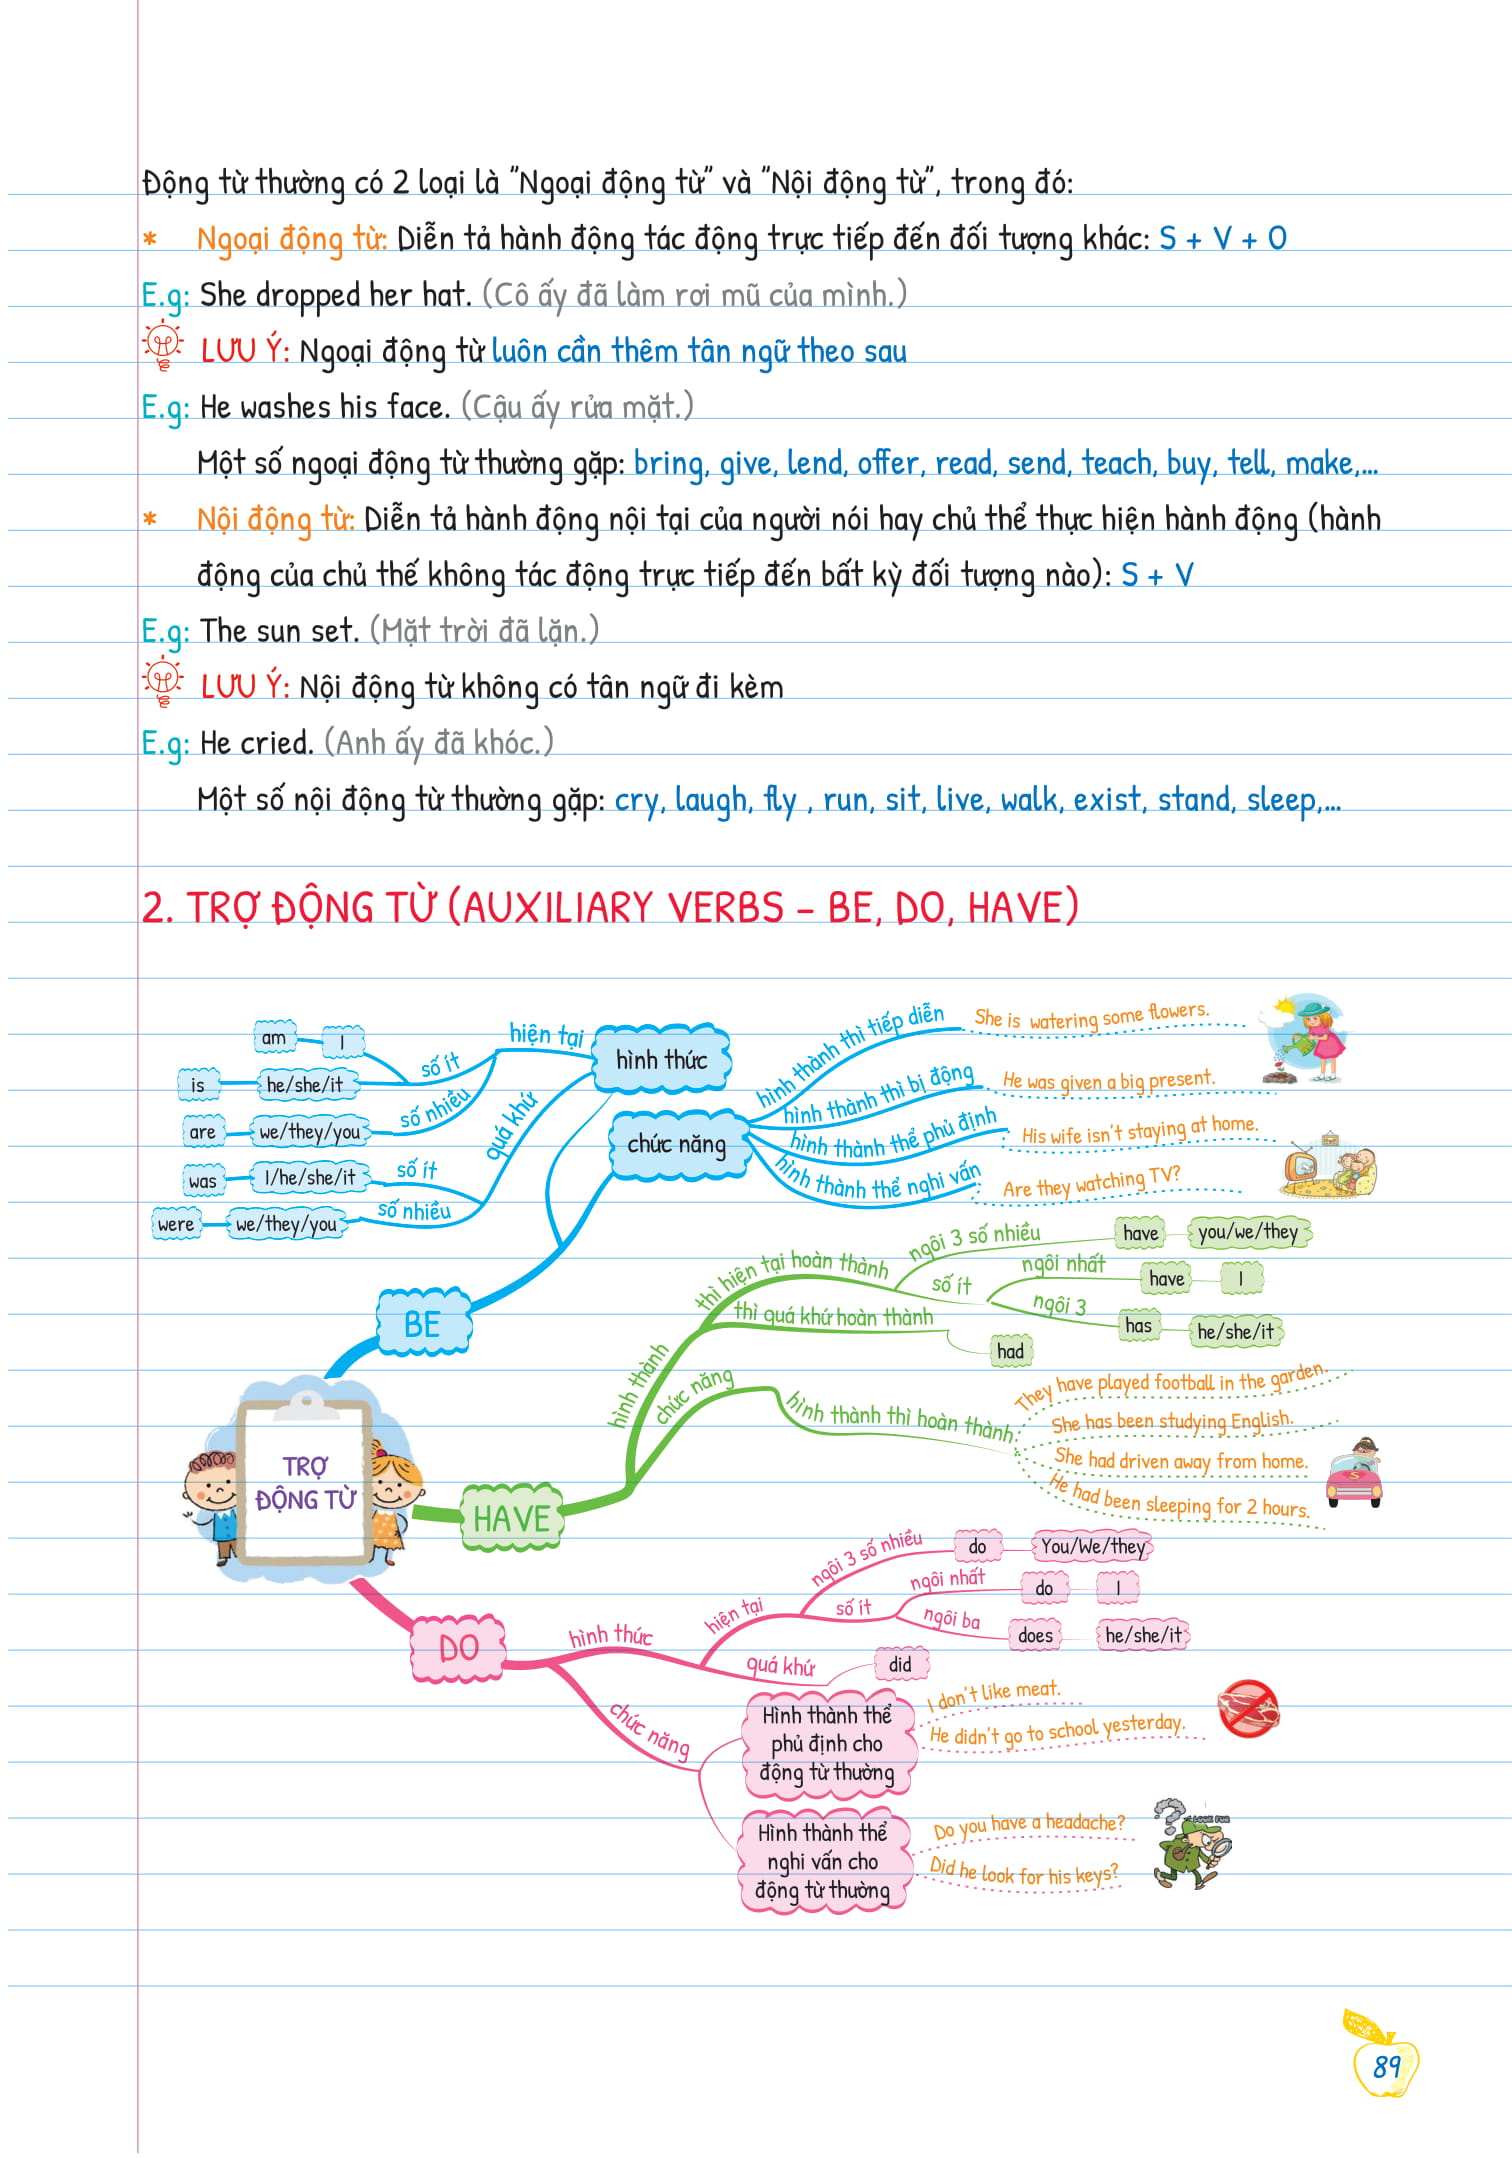 Động từ thường có 2 loại là "Ngoại động từ" và "Nội động từ", trong đó:
* Ngoại động từ: Diễn tả hành động tác động trực tiếp đến đối tượng khác: S + V + O
E.g: She dropped her hat. (Cô ấy đã làm rơi mũ của mình.)
LƯU Ý: Ngoại động từ luôn cần thêm tân ngữ theo sau
E.g: He washes his face. (Cậu ấy rửa mặt.)
Một số ngoại động từ thường gặp: bring, give, lend, offer, read, send, teach, buy, tell, make,...
* Nội động từ: Diễn tả hành động nội tại của người nói hay chủ thể thực hiện hành động (hành
động của chủ thế không tác động trực tiếp đến bất kỳ đối tượng nào): S + V
E.g: The sun set. (Mặt trời đã lặn.)
LƯU Ý: Nội động từ không có tân ngữ đi kèm
E.g: He cried. (Anh ấy đã khóc.)
Một số nội động từ thường gặp: cry, laugh, fly , run, sit, live, walk, exist, stand, sleep,...
2. TRỢ ĐỘNG TỪ (AUXILIARY VERBS – BE, DO, HAVE)
TRỢ
ĐỘNG TỪ
BE
hình thức
hiện tại
số ít
am
I
is
he/she/it
số nhiều
are
we/they/you
quá khứ
số ít
was
I/he/she/it
số nhiều
were
we/they/you
chức năng
hình thành thì tiếp diễn
She is watering some flowers.
hình thành thì bị động
He was given a big present.
hình thành thể phủ định
His wife isn't staying at home.
hình thành thể nghi vấn
Are they watching TV?
HAVE
hình thành
thì hiện tại hoàn thành
ngôi 3 số nhiều
have
you/we/they
số ít
ngôi nhất
have
I
ngôi 3
has
he/she/it
thì quá khứ hoàn thành
had
chức năng
hình thành thì hoàn thành
They have played football in the garden.
She has been studying English.
She had driven away from home.
He had been sleeping for 2 hours.
DO
hình thức
hiện tại
ngôi 3 số nhiều
do
You/We/they
số ít
ngôi nhất
do
I
ngôi ba
does
he/she/it
quá khứ
did
chức năng
Hình thành thể
phủ định cho
động từ thường
I don't like meat.
He didn't go to school yesterday.
Hình thành thể
nghi vấn cho
động từ thường
Do you have a headache?
Did he look for his keys?
LOOK FOR
89